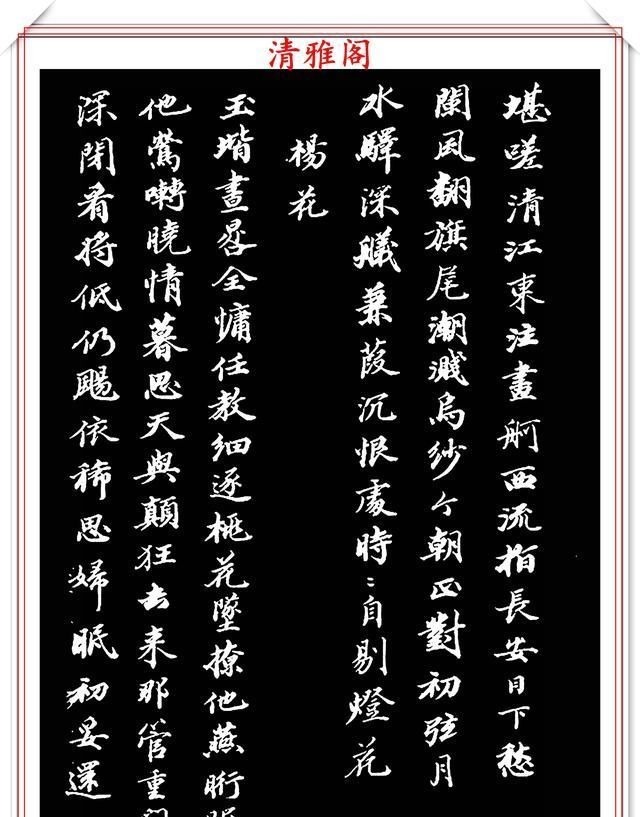 清雅阁
堪嗟清江東注畫舸西流指長安日下愁
闌风翻旗尾潮濺烏紗今朝正對初弦月
水驛深艤蒹葭沉恨處時〻自剔燈花
楊花
玉堦晝全慵任教細逐桃花墜撩他燕
他鶯囀曉情暮思天與顛狂去来那管重
深閉看将低仍颺依稀思婦眠初妥還